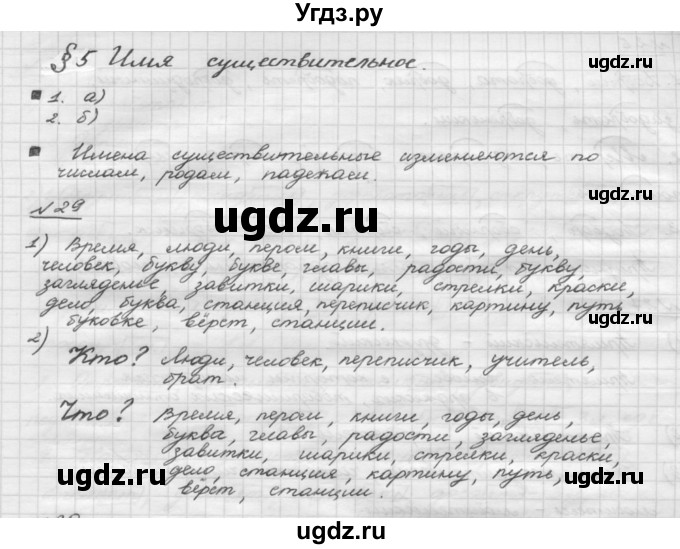 Угдз.ру
§5 Имя существительное.
1. а)
2. б)
Имена существительные изменяются по
числам, родам, падежам.
№29
ugdz.ru ugdz.ru
1) Время, люди, пером, книги, годы, день,
человек, букву, букве, главы, радости, букву,
загляденье, завитки, шарики, стрелки, краски,
дело, буква, станция, переписчик, картину, путь,
буковке, вёрст, станции.
2)
Кто? Люди, человек, переписчик, учитель,
брат.
ugdz.ru ugdz.ru
Что? Время, пером, книги, годы, день,
буква, главы, радости, загляденье,
завитки, шарики, стрелки, краски,
дело, станция, картину, путь,
вёрст, станции.
ugdz.ru ugdz.ru
ugdz.ru